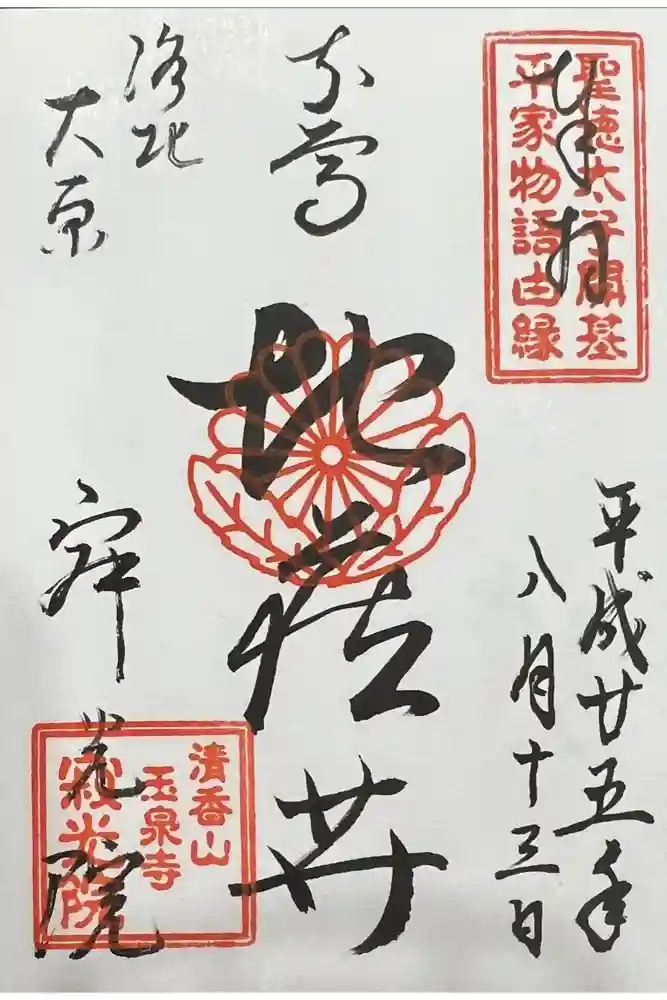 聖徳太子開基
平家物語由縁
奉拝
平成廿五年
八月十三日
地蔵𦬇
洛北
大原
寂光院
清香山
玉泉寺
寂光院